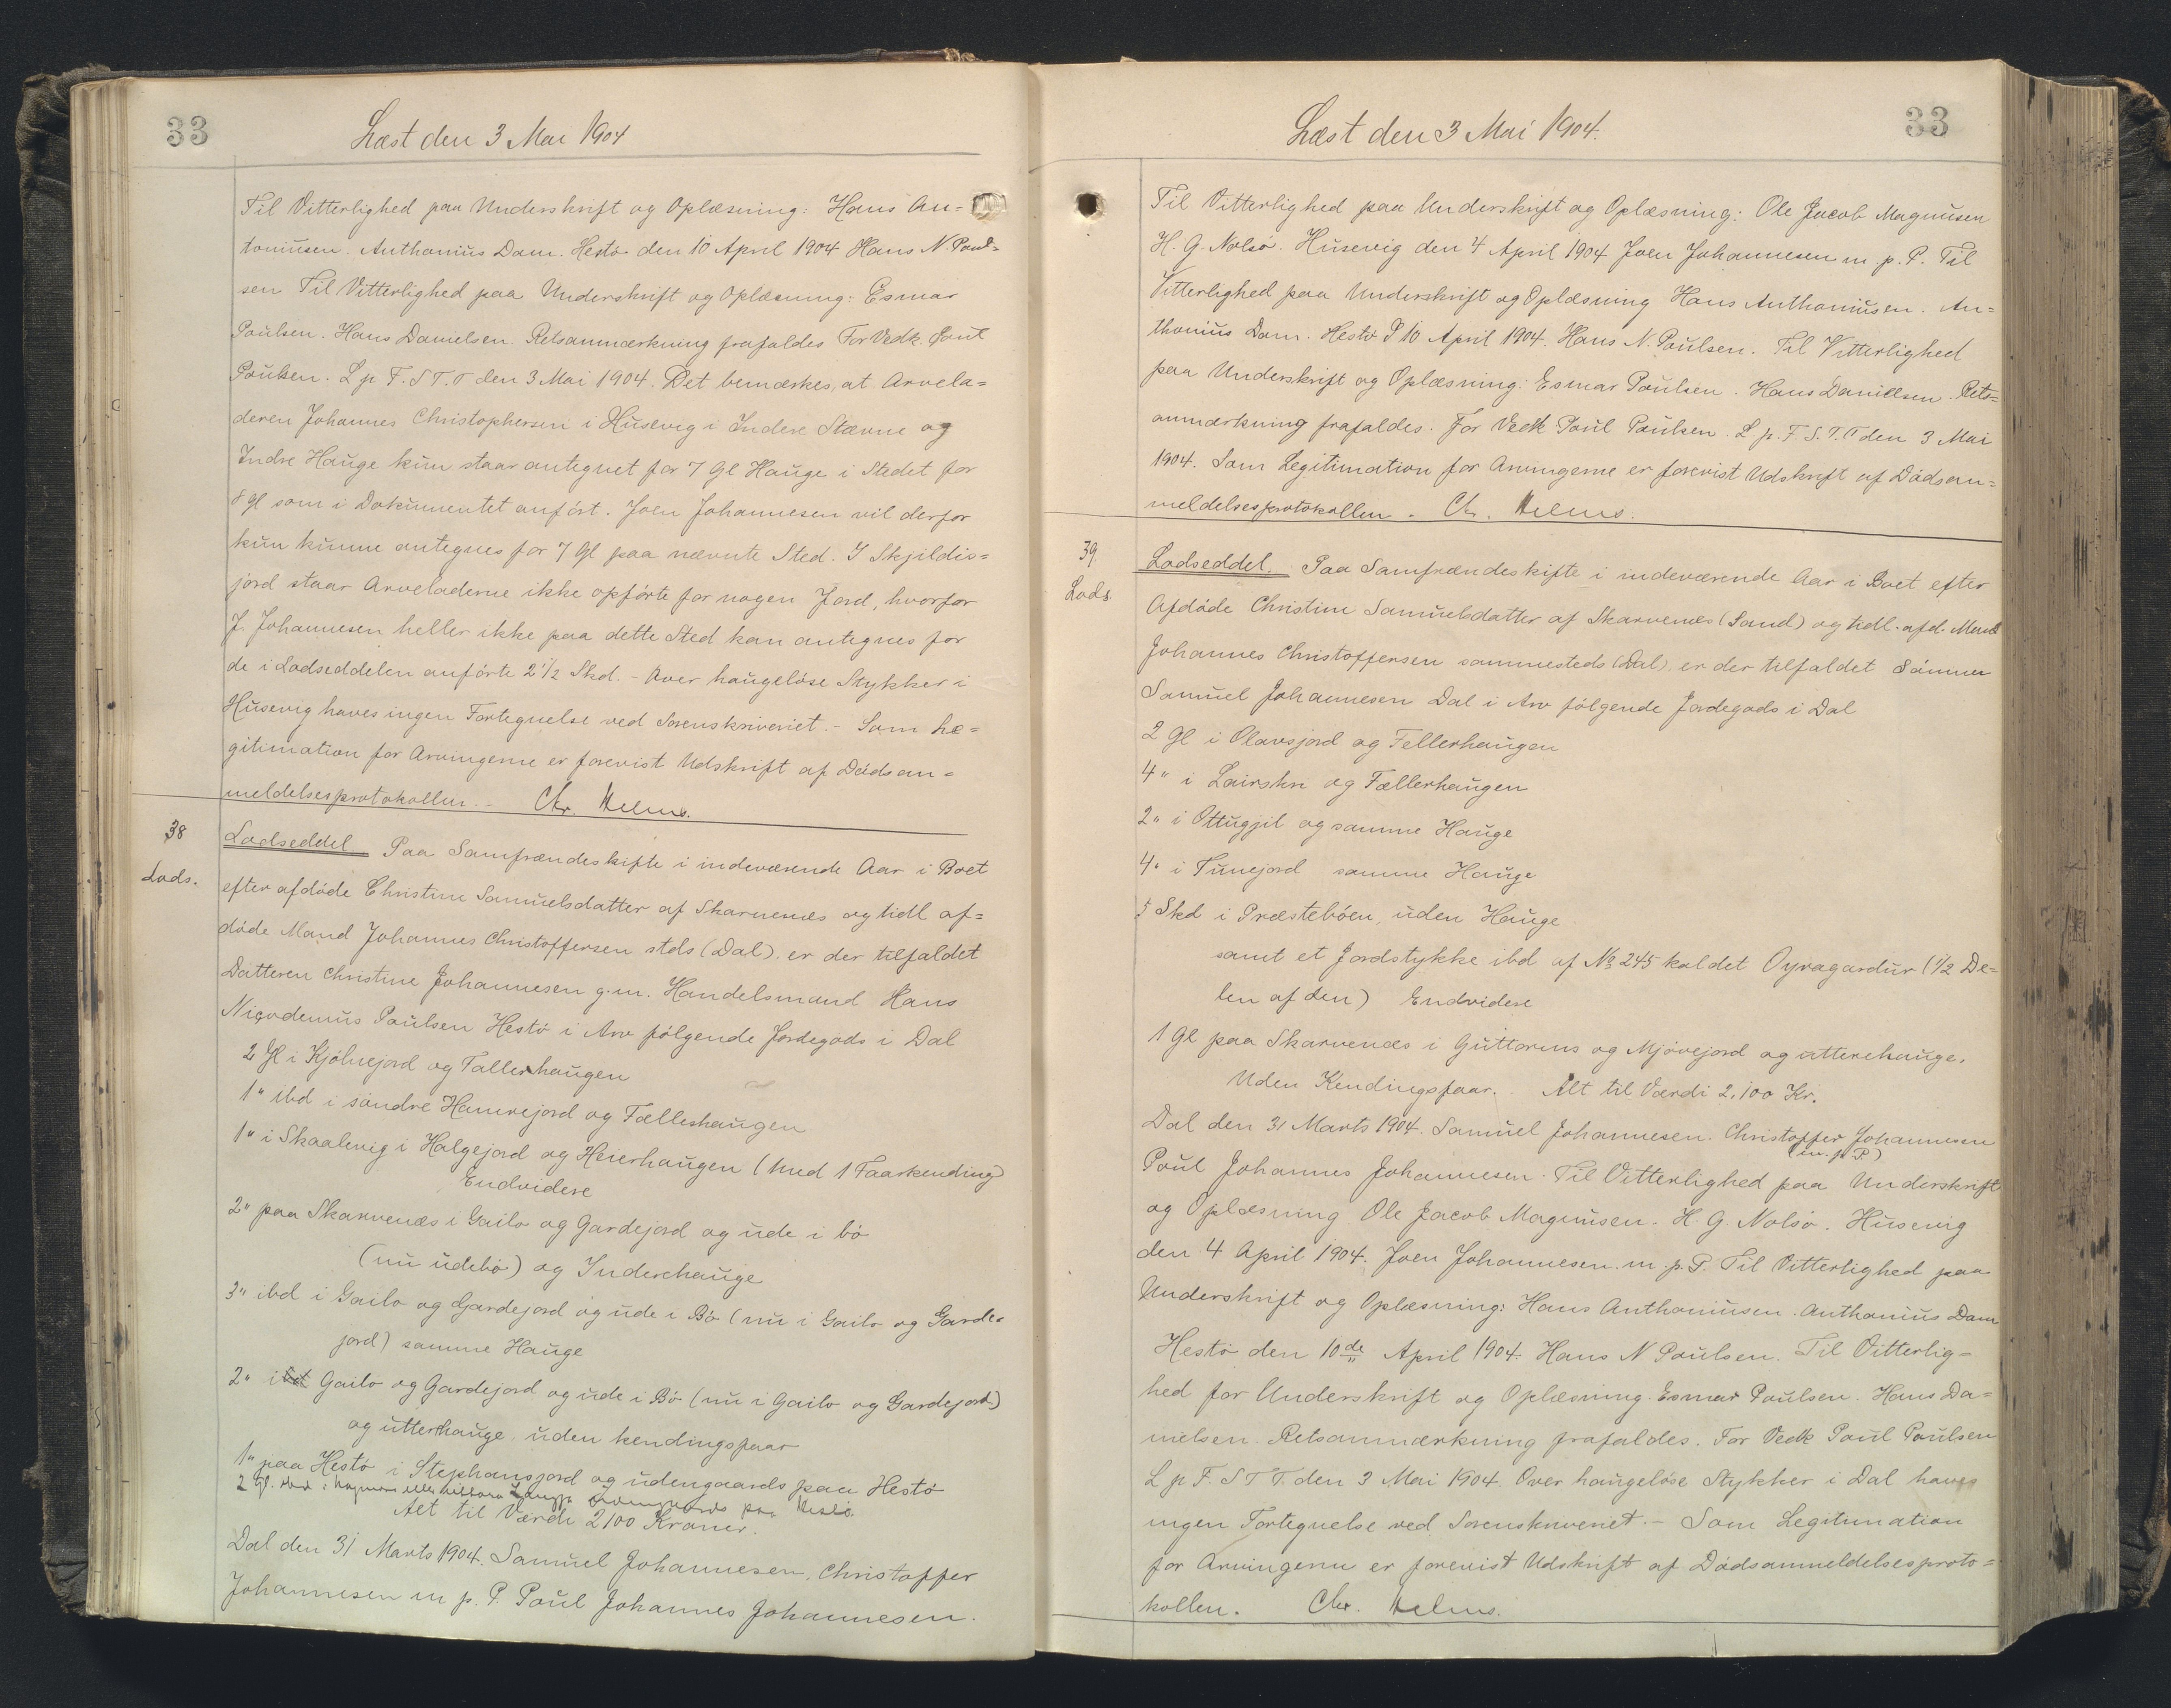 33
Læst den 3 Mai 1904
Til Vitterlighed paa Underskrift og Oplæsning: Hans An-
toniusen. Anthonius Dam. Hestö den 10 April 1904 Hans N. Poul-
sen Til Vitterlighed paa Underskrift og Oplæsning: Esmar
Poulsen. Hans Danielsen. Retsanmærkning frafaldes For Vedk. Poul
Poulsen. L p F. S T. T den 3 Mai 1904. Det bemærkes, at Arvela-
deren Johannes Christophersen i Husevig i Indere Stævne og
Indre Hauge kun staar antegnet for 7 Gl Hauge i Stedet for
8 gl som i Dokumentet anfört. Joen Johannesen vil derfor
kun kunne antegnes for 7 Gl paa nævnte Sted. I Skjildis-
jord staar Arveladerne ikke opförte for nogen Jord, hvorfor
J. Johannesen heller ikke paa dette Sted kan antegnes for
de i Lodseddelen anförte 2 1/2 Skd. - Over haugelöse Stykker i
Husevig haves ingen Fortegnelse ved Sorenskriveriet. - Som Le-
gitimation for Arvingerne er forevist Udskrift af Dödsan-
meldelsesprotokollen. - Chr. Helms.
38
Lods.
Lodseddel Paa Samfrændeskifte i indeværende Aar i Boet
efter afdöde Christine Samuelsdatter af Skarvenæs og tidl af-
döde Mand Johannes Christoffersen stds (Dal). er der tilfaldet
Datteren Christine Johannesen g. m. Handelsmand Hans
Nicodemus Poulsen Hestö i Arv fölgende Jordegods i Dal
2 Gl i Kjölnejord og Fallerhaugen
1 " ibd i söndre Hamrejord og Fællerhaugen
1 " i Skaalevig i Halgejord og Heierhaugen (med 1 Faarkending)
Endvidere
2 " paa Skarvenæs i Gailo og Gardejord og ude i bö
(nu udebö) og Inderehauge
3 " ibd i Gailo og Gardejord og ude i Bö (nu i Gailo og Garde-
jord) samme Hauge
2 " i Gailo og Gardejord og ude i Bö (nu i Gailo og Gardejord)
og utterhauge uden kendingsfaar
1 " paa Hestö i Stephansjord og udengaards paa Hestö
2 Gl. Hestö
Alt til Værdi 2100 Kroner.
Dal den 31 Marts 1904. Samuel Johannesen, Christoffer
Johannesen m p. P. Poul Johannes Johannesen.
33
Læst den 3 Mai 1904.
Til Vitterlighed paa Underskrift og Oplæsning: Ole Jacob Magnusen
H. G. Nolsö. Husevig den 4 April 1904 Joen Johannesen m. p. P. Til
Vitterlighed paa Underskrift og Oplæsning Hans Anthoniusen. An-
thonius Dam. Hestö d 10 April 1904. Hans N. Poulsen. Til Vitterlighed
paa Underskrift og Oplæsning: Esmar Poulsen. Hans Danielsen. Rets-
anmærkning frafaldes. For Vedk Poul Poulsen. L p. F. S. T. T den 3 Mai
1904. Som Legitimation for Arvingerne er forevist Udskrift af Dödsan-
meldelsesprotokollen. Chr. Helms.
39
Lods
Lodseddel. Paa Samfrændeskifte i indeværende Aar i Boet efter
Afdöde Christine Samuelsdatter af Skarvenæs (Sand) og tidl. afd. Mand
Johannes Christoffersen sammesteds (Dal). er der tilfaldet Sönnen
Samuel Johannesen Dal i Arv fölgende Jordegods i Dal
2 Gl i Olavsjord og Fellerhaugen
4 " i Lairshn og Fællerhaugen
2 " i Ottugjil og samme Hauge
4 " i Tunejord samme Hauge
5 Skd i Præsteböen, uden Hauge
samt et Jordstykke ibd af No 245 kaldet Oyragardur (1/2 De-
len af den) Endvidere
1 Gl paa Skarvenæs i Guttorms og Mjövejord og utterehauge.
Uden Kendingsfaar. Alt til Værdi 2,100 Kr.
Dal den 31 Marts 1904. Samuel Johannesen. Christoffer Johannesen
(m. p. P.)
Poul Johannes Johannesen. Til Vitterlighed paa Underskrift
og Oplæsning Ole Jacob Magnusen. H. G. Nolsö. Husevig
den 4 April 1904. Joen Johannesen. m. p. P. Til Vitterlighed paa
Underskrift og Oplæsning: Hans Anthoniusen. Anthonius Dam
Hestö den 10de April 1904. Hans N Poulsen. Til Vitterlig-
hed for Underskrift og Oplæsning. Esmar Poulsen. Hans Da-
nielsen. Retsanmærkning frafaldes. For Vedk Poul Poulsen
L p F. S T T. den 3 Mai 1904. Over haugelöse Stykker i Dal haves
ingen Fortegnelse ved Sorenskriveriet. - Som Legitimation
for Arvingerne er forevist Udskrift af Dödsanmeldelsesproto-
kollen. Chr. Helms.